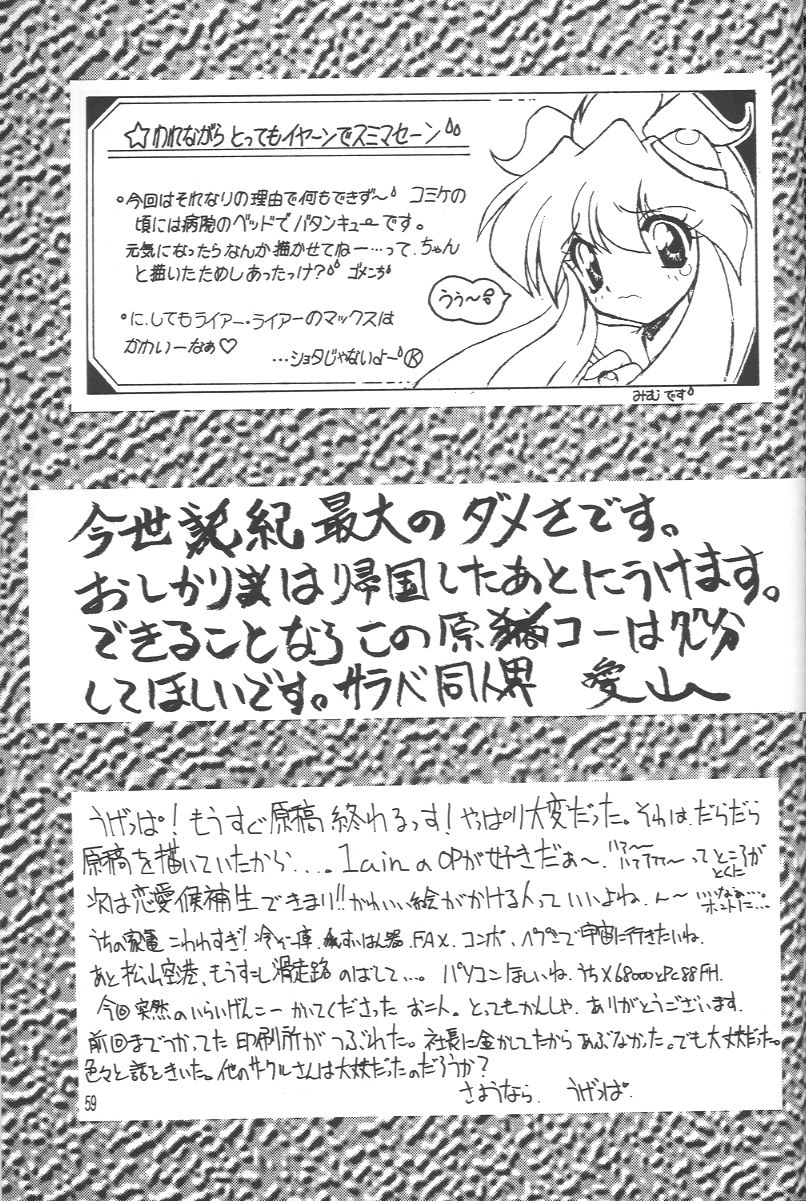 ☆われながら とってもイヤ〜ンでスミマセーン
•今回はそれなりの理由で何もできず〜 コミケの
頃には病院のベッドでバタンキューです。
元気になったらなんか描かせてねー…って、ちゃん
と描いたためしあったっけ? ゴメンち
•に、してもライアー・ライアーのマックスは
かわいーなぁ♡
…ショタじゃないよー Ⓚ
うぅ〜
みむです
今世紀最大の ダメさです。
おしかりは帰国したあとにうけます。
できることなら この原コーは処分
してほしいです。サラバ同人界 愛山
うげっぱ!もうすぐ原稿終れるっす!やっぱり大変だった。それは、だらだら
原稿を描いていたから...。lainのOPが好きだぁ〜。って ところが とくに
次は恋愛候補生できまり!!かわいい絵がかける人っていいよね、ん〜 いいなぁ…。ホントに…
うちの家電こわれすぎ!冷ぞー庫、すいはん器、FAX、コンポ、で宇宙に行きたいね。
あと松山空港、もうすこし滑走路のばして…。パソコンほしいね、うちX68000とPC88FH.
今回突然のいらいげんこー かいてくださった お二人。とってもかんしゃ。ありがとうございます。
前回までつかってた印刷所がつぶれた。社長に金かしてたから あぶなかった。でも大丈夫だった。
色々と話をきいた。他のサークルさんは大丈夫だったのだろうか?
さようなら. うげっぱ.
59